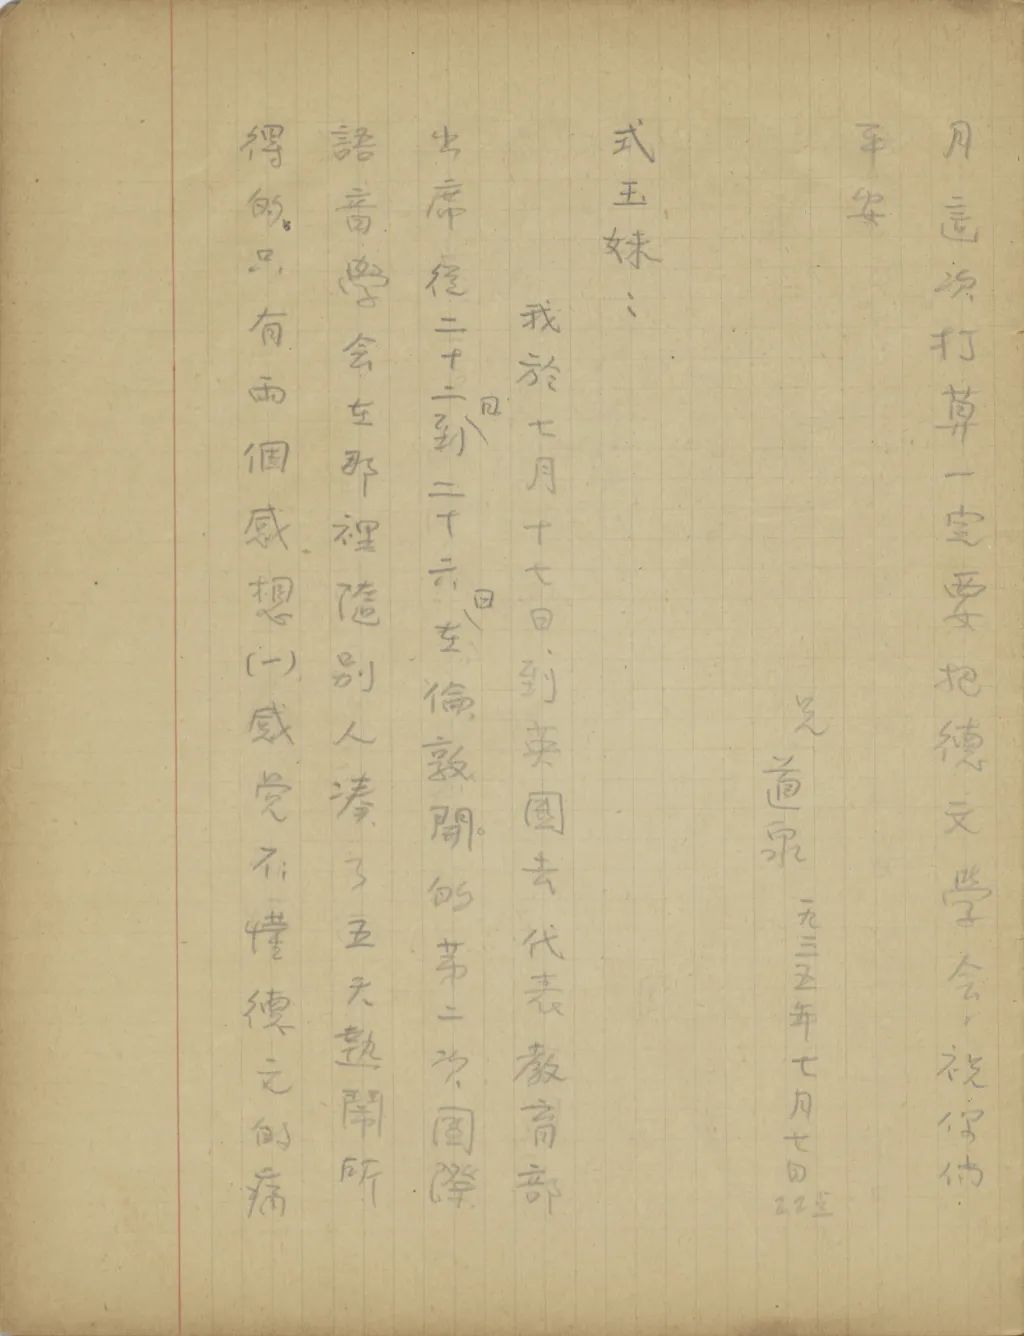 月這次打算一定要把德文学会，祝你们
平安
兄
道泉
一九三五年七月七日22点
式玉妹：
我於七月十七日到英國去代表教育部
出席從二十二日到二十六日在倫敦開的第二次國際
語音學会在那裡隨別人凑了五天熱鬧所
得的只有两個感想(一)感觉不懂德文的痛